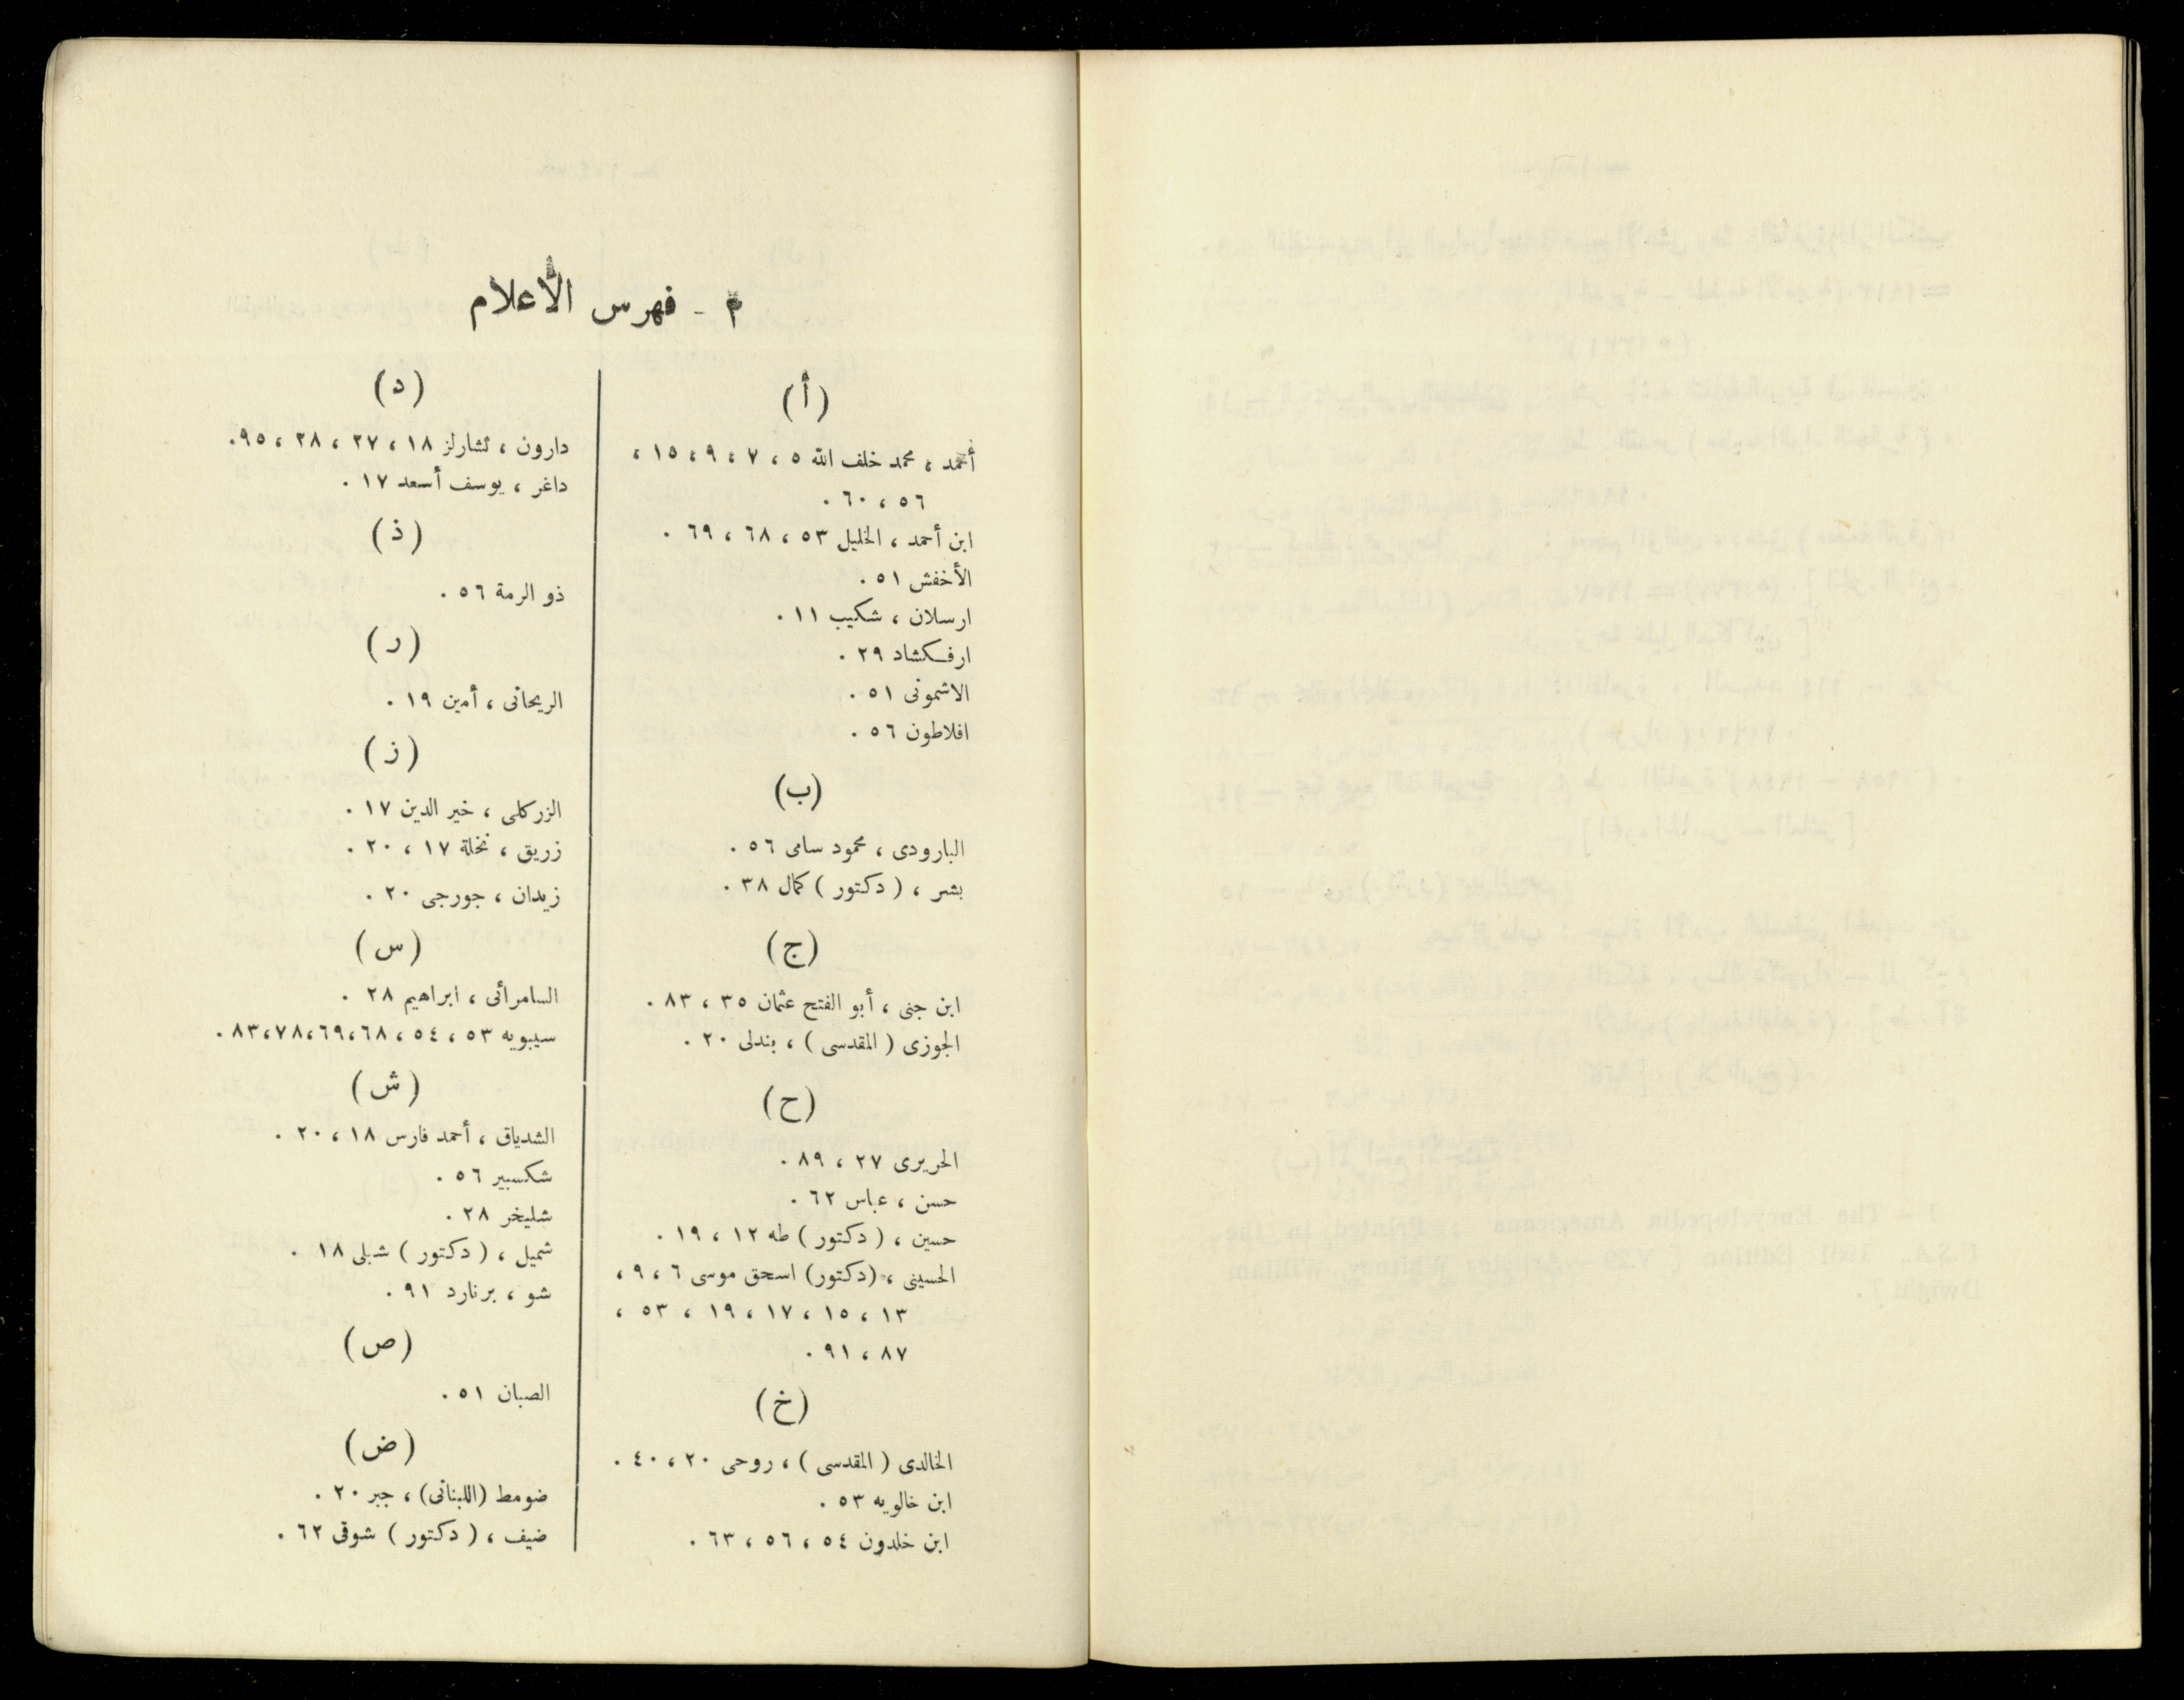 ٣ - فهرس الأعلام
(أ)
أحمد ، محمد خلف الله ٥ ، ٧ ، ٩ ، ١٥ ،
٥٦ ، ٦٠ .
ابن أحمد ، الخليل ٥٣ ، ٦٨ ، ٦٩ .
الأخفش ٥١ .
ارسلان ، شكيب ١١ .
ارفكشاد ٢٩ .
الاشمونى ٥١ .
افلاطون ٥٦ .
(ب)
البارودى ، محمود سامى ٥٦ .
بشر ، ( دكتور ) كمال ٣٨ .
(ج)
ابن جنى ، أبو الفتح عثمان ٣٥ ، ٨٣ .
الجوزى ( المقدسى ) ، بندلى ٢٠ .
(ح)
الحريرى ٢٧ ، ٨٩ .
حسن ، عباس ٦٢ .
حسين ، ( دكتور ) طه ١٢ ، ١٩ .
الحسينى ، (دكتور) اسحق موسى ٦ ، ٩ ،
١٣ ، ١٥ ، ١٧ ، ١٩ ، ٥٣ ،
٨٧ ، ٩١ .
(خ)
الخالدى ( المقدسى ) ، روحى ٢٠ ، ٤٠ .
ابن خالويه ٥٣ .
ابن خلدون ٥٤ ، ٥٦ ، ٦٣ .
(د)
دارون ، تشارلز ١٨ ، ٢٧ ، ٢٨ ، ٩٥ .
داغر ، يوسف أسعد ١٧ .
(ذ)
ذو الرمة ٥٦ .
(ر)
الريحانى ، أمين ١٩ .
(ز)
الزركلى ، خير الدين ١٧ .
زريق ، نخلة ١٧ ، ٢٠ .
زيدان ، جورجى ٢٠ .
(س)
السامرائى ، ابراهيم ٢٨ .
سيبويه ٥٣ ، ٥٤ ، ٦٨ ،٦٩ ،٧٨ ،٨٣ .
(ش)
الشدياق ، أحمد فارس ١٨ ، ٢٠ .
شكسبير ٥٦ .
شليخر ٢٨ .
شميل ، ( دكتور ) شبلى ١٨ .
شو ، برنارد ٩١ .
(ص)
الصبان ٥١ .
(ض)
ضومط (اللبنانى) ، جبر ٢٠ .
ضيف ، ( دكتور ) شوقى ٦٢ .